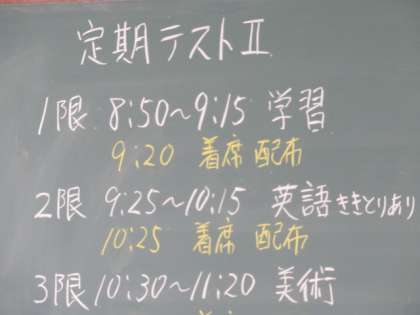 定期テストⅡ
1限 8:50~9:15 学習
9:20 着席 配布
2限 9:25~10:15 英語 ききとりあり
10:25 着席 配布
3限 10:30~11:20 美術